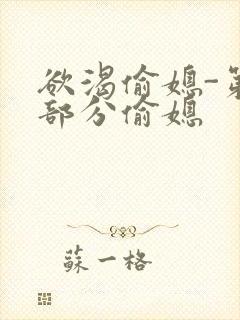 欲渴偷媳-第
部分偷媳
蘇一格